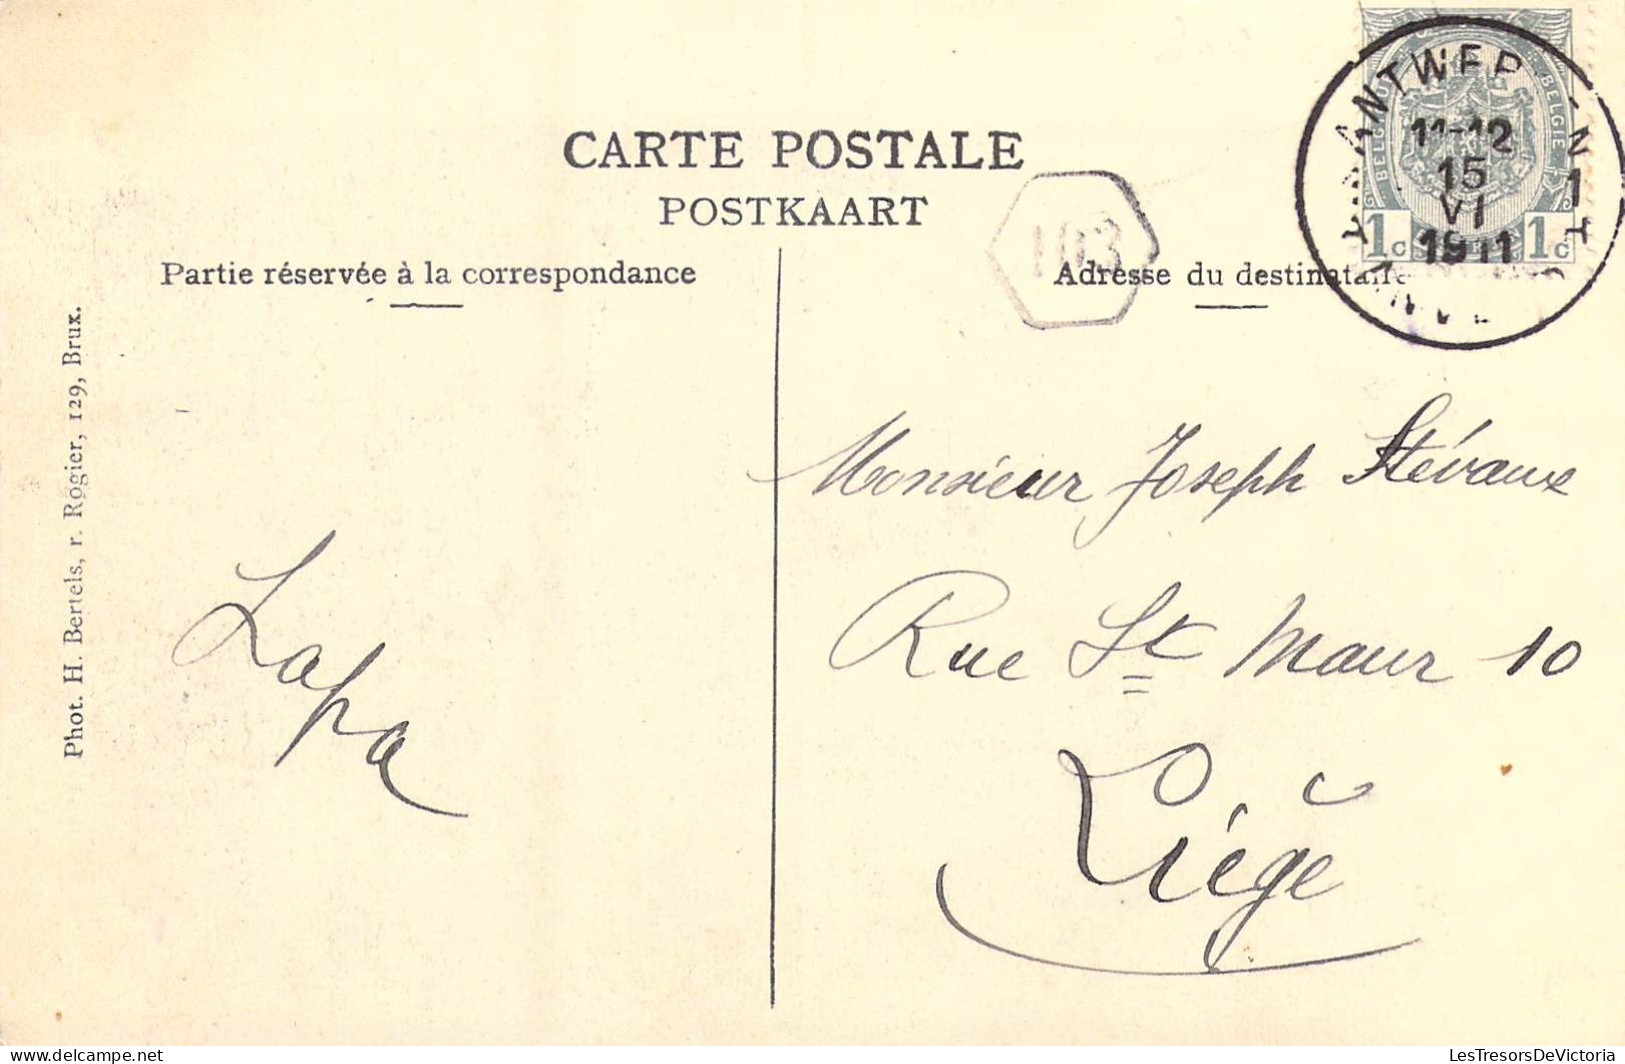 CARTE POSTALE
POSTKAART
Partie réservée à la correspondance
Adresse du destinataire
Phot. H. Bertels, r. Rogier, 129, Brux.
ANTWERP
11-12
15
VI
1911
1c 1c
103
Monsieur Joseph Stévaux
Rue St Maur 10
Liége
Lapa
LesTresorsDeVictoria